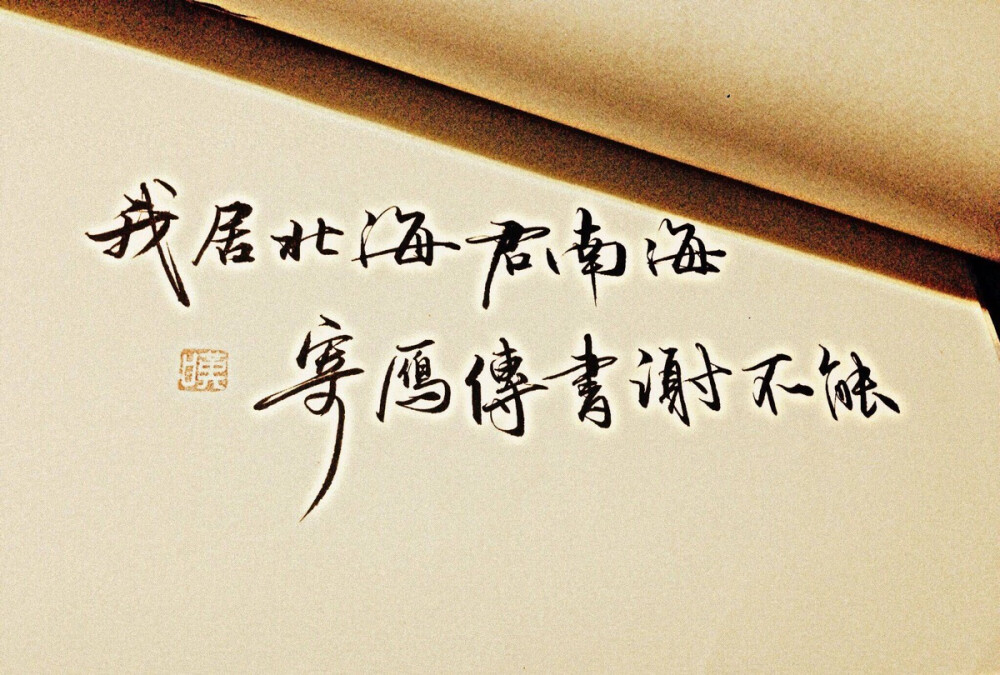 我居北海君南海
寄鴈傳書謝不能